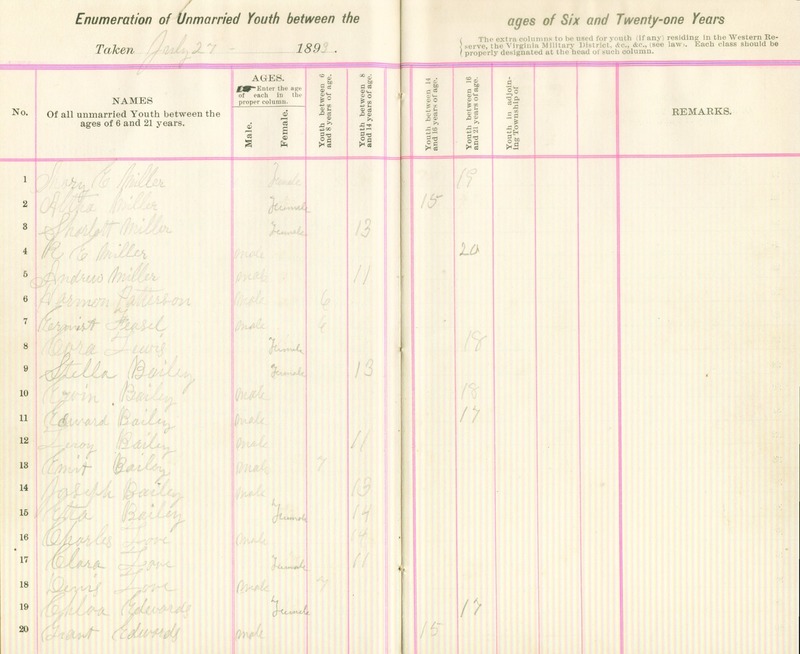 Enumeration of Unmarried Youth between the ages of Six and Twenty-one Years
Taken July 27 - 1893.
The extra columns to be used for youth (if any) residing in the Western Re-
serve, the Virginia Military District, &c., &c., (see law). Each class should be
properly designated at the head of such column.
No.
NAMES
Of all unmarried Youth between the
ages of 6 and 21 years.
AGES.
Enter the age
of each in the
proper column.
Male.
Female.
Youth between 6
and 8 years of age.
Youth between 8
and 14 years of age.
Youth between 14
and 16 years of age.
Youth between 16
and 21 years of age.
Youth in adjoin-
ing Township of
REMARKS.
1 Mary E Miller Female 19
2 Miller Female 15
3 Sharlott Miller Female 13
4 R E Miller male 20
5 Andrew Miller male 11
6 Harmon Patterson Male 6
7 Feasel male
8 Cora Lewis Female 18
9 Stella Bailey Female 13
10 Bailey Male 18
11 Edward Bailey male 17
12 Leroy Bailey Male 11
13 Emit Bailey male 7
14 Joseph Bailey Male 13
15 Etta Bailey Female 14
16 Charles Love Male
17 Clara Love Female 11
18 Denis Love Male 7
19 Edwards Female 17
20 Grant Edwards male 15